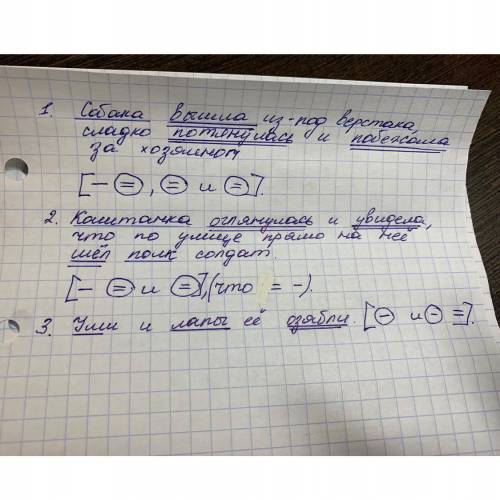 1. Собака вышла из-под верстака,
сладко потянулась и побежала
за хозяином
[– (=), (=) и (=)].
2. Каштанка оглянулась и увидела,
что по улице прямо на неё
шёл полк солдат.
[– (=) и (=)], (что = –).
3. Уши и лапы её озябли. [(–) и (–) =].